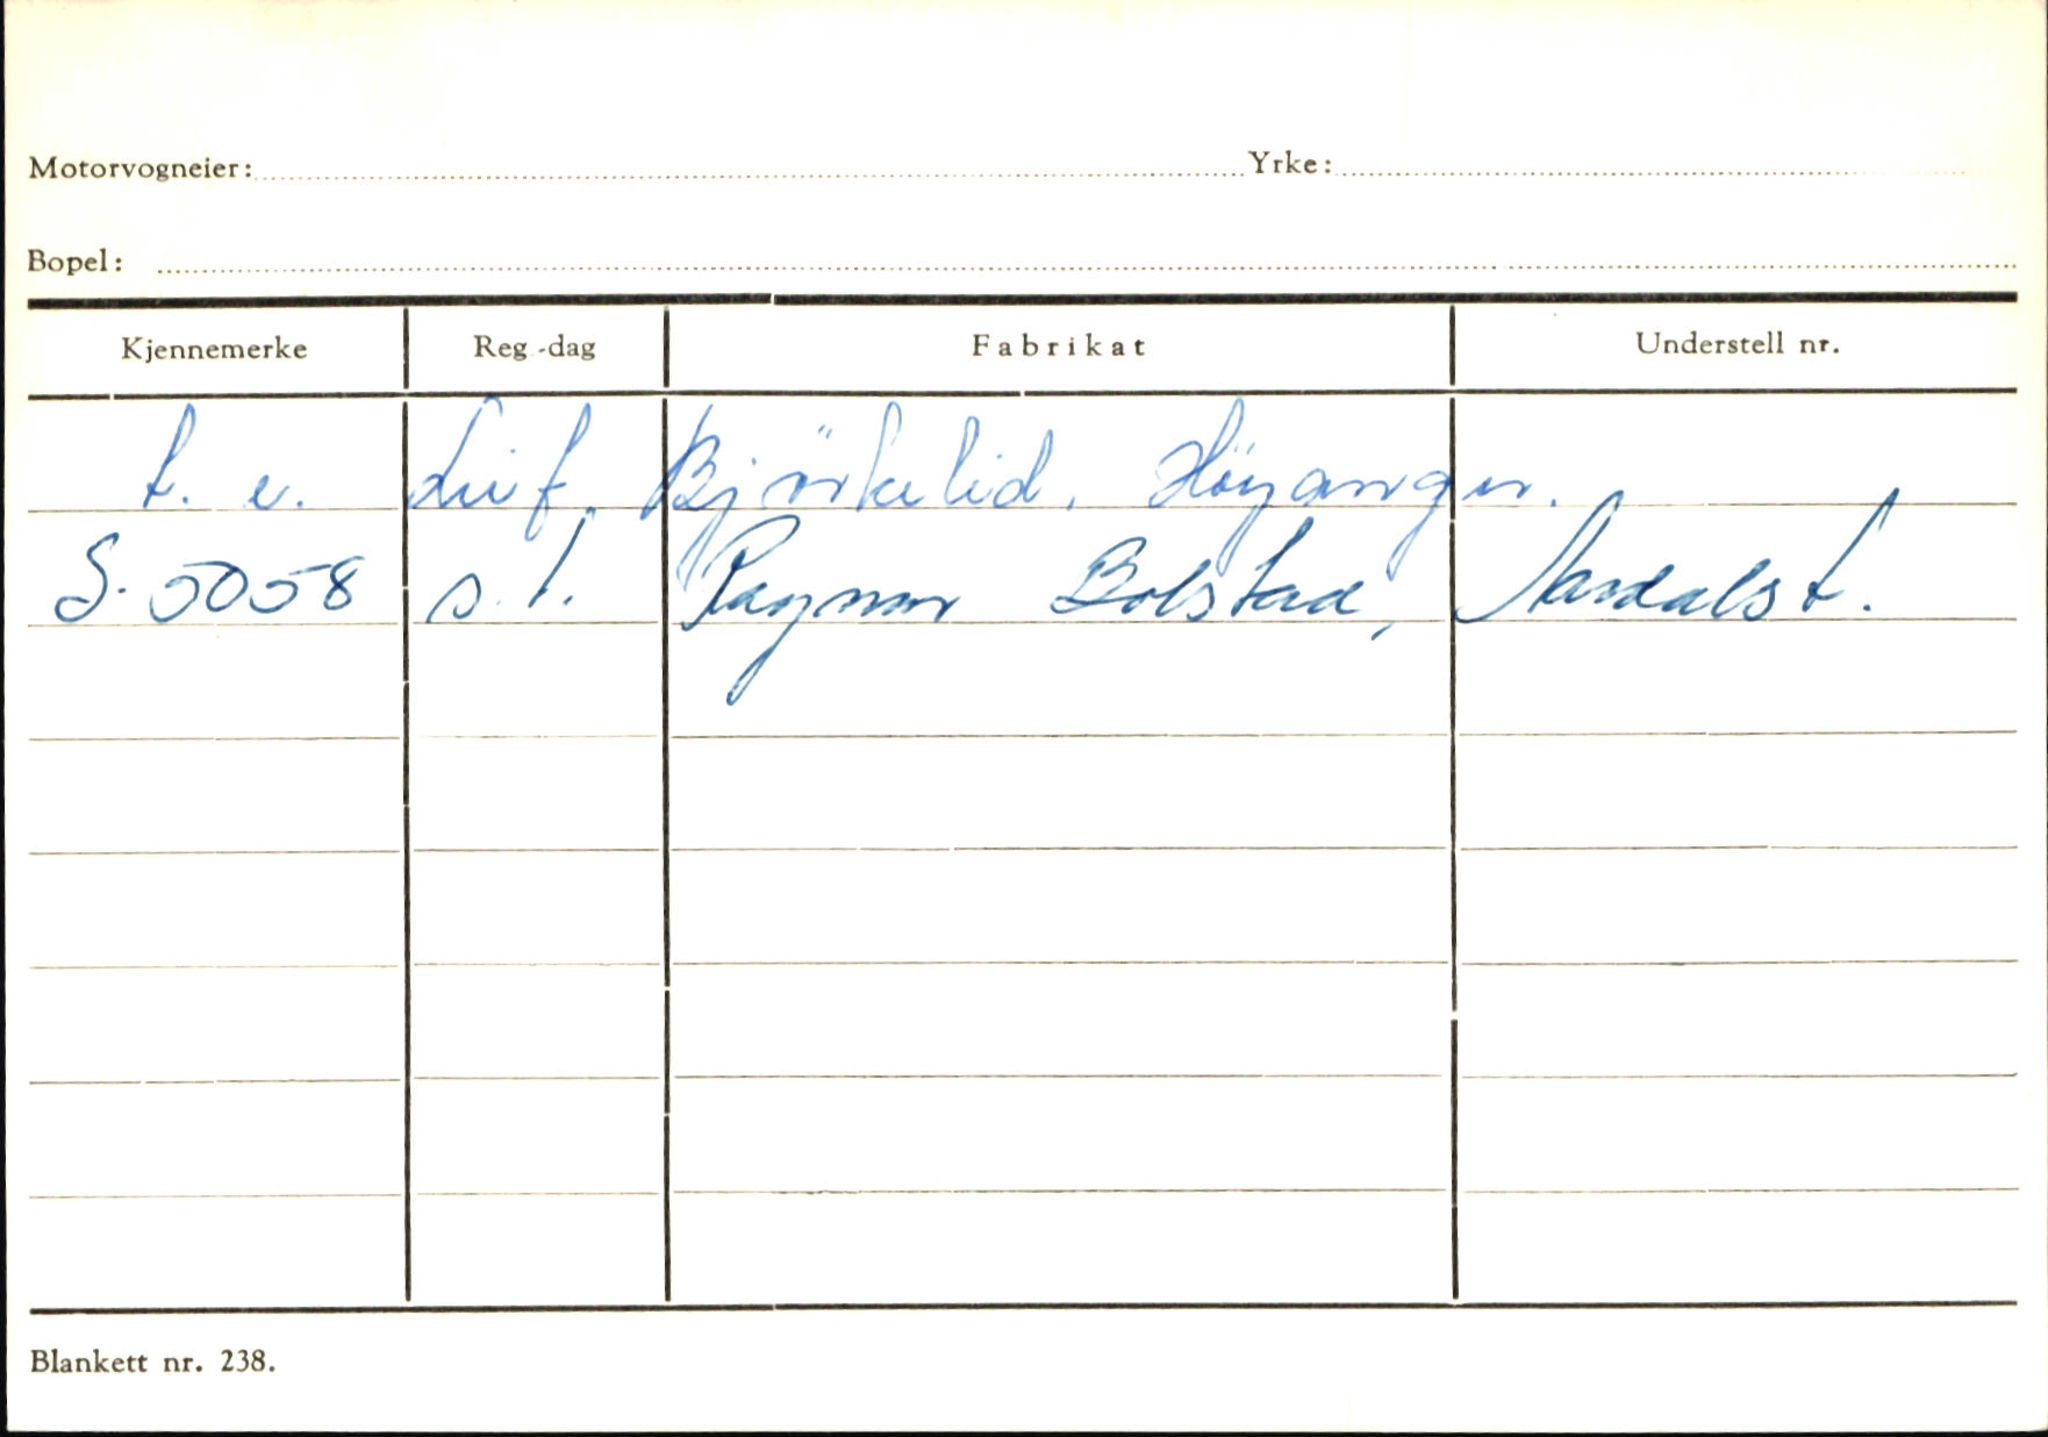 Motorvogneier: Yrke:
Bopel:
Kjennemerke Reg.-dag Fabrikat Understell nr.
t. e. Leif Björkelid, Höyanger.
S-5058 s.t. Ragnar Bolstad, Aardalst.
Blankett nr. 238.